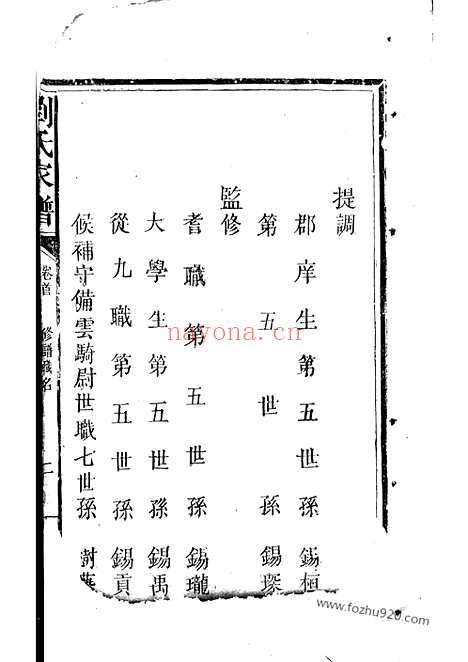 提調
郡庠生第五世孫錫桓
第五世孫錫琛
監修
耆職第五世孫錫瓏
大學生第五世孫錫禹
從九職第五世孫錫貢
候補守備雲騎尉世職七世孫樹
劉氏家譜
卷首
修譜職名
nayona.cn
www.fozhu920.com